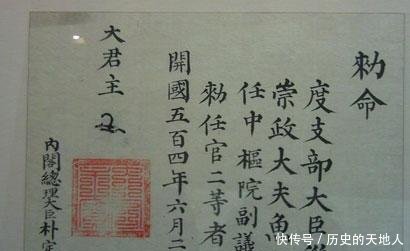 勅命
度支部大臣
崇政大夫魚
任中樞院副議
勅任官二等者
開國五百四年六月二
大君主
內閣總理大臣朴
快传号/历史的天地人